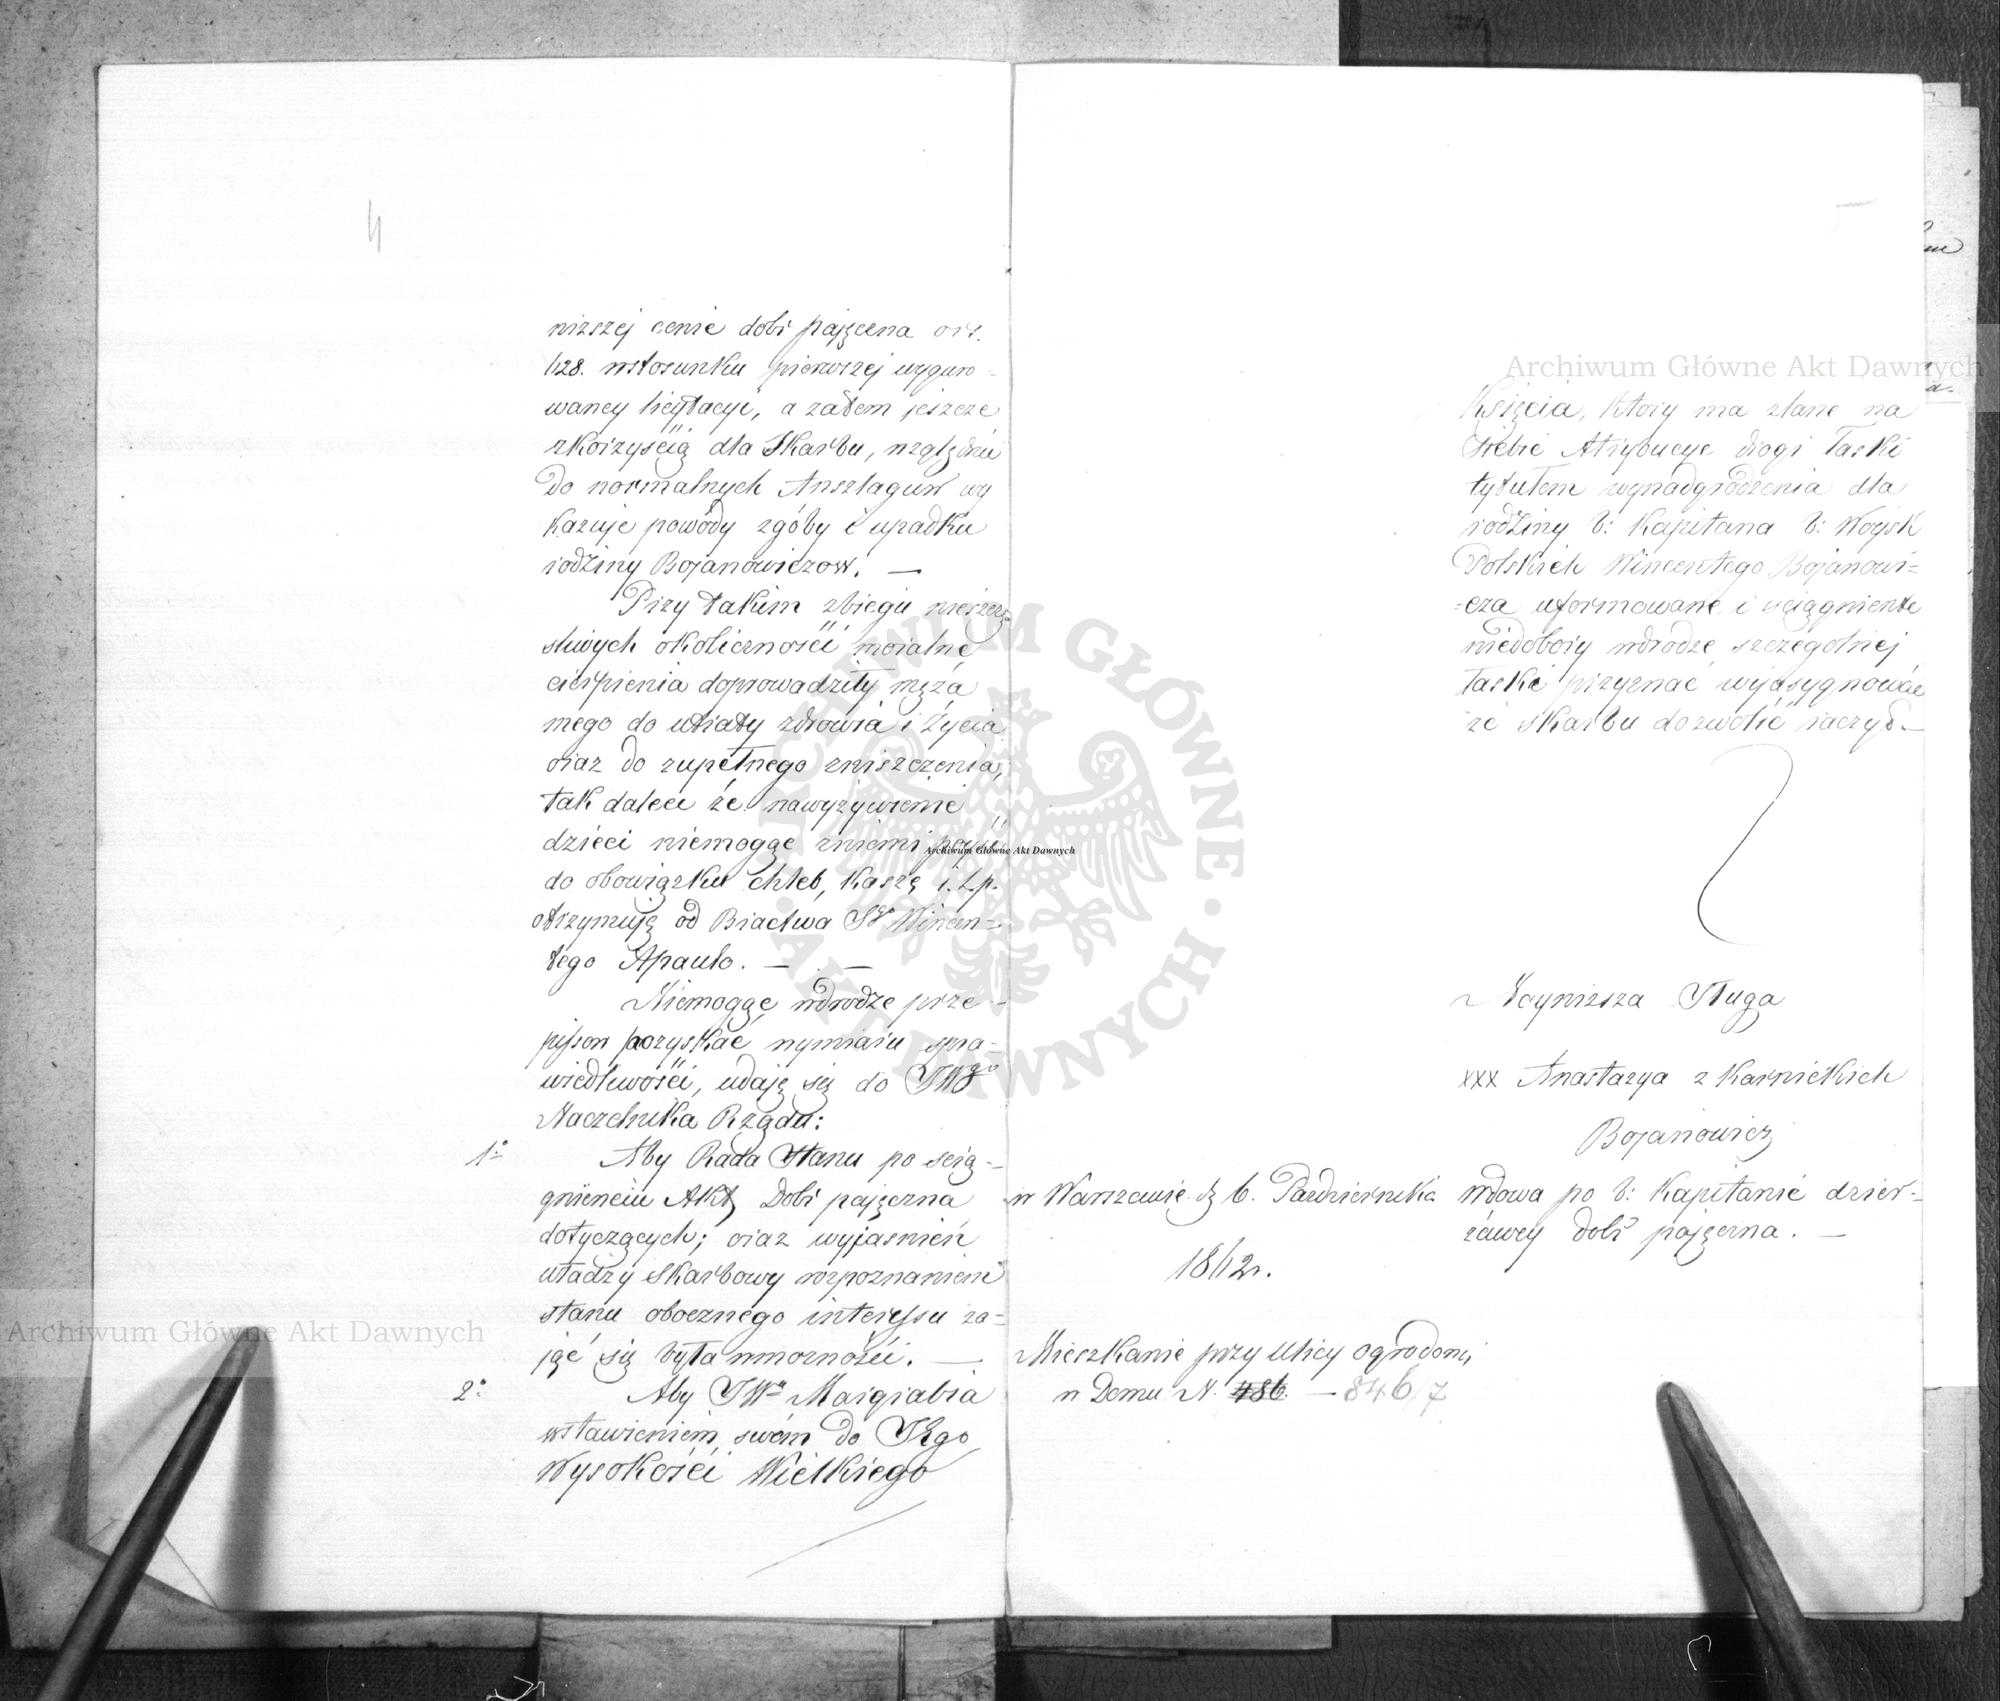 4
niższej cenie dobr pajęczna o rs.
128. wstosunku pierwszej wyguro-
waney licytacyi, a zatem jeszcze
zkorzyścią dla Skarbu, względnie
do normalnych Anszlagów wy
kazuje powody zgóby i upadku
rodziny Bojanowiczow. —
Przy takim zbiegu nieszczę-
sliwych okoliczności moralne
cierpienia doprowadziły męża
mego do utraty zdrowia i życia
oraz do zupełnego zniszczenia,
tak dalece że nawyżywienie
dzieci niemogąc zniemi
do obowiązku chleb, kaszę i. t. p.
otrzymuję od Bractwa Sgo Wincen-
tego Apaulo. — . —
Niemogąc wdrodze prze-
pisow pozyskać wymiaru spra-
wiedliwości, udaję się do JWgo
Naczelnika Rządu:
1o Aby Rada Stanu po sciąg-
gnieniu Akt Dobr pajęczna
dotyczących; oraz wyjasnień
władzy Skarbowy rozpoznaniem
stanu obocznego interessu za-
jąć się była wmozności. —
2o Aby JWny Margrabia
wstawieniem swém do JEgo
Wysokości Wielkiego
5
Księcia, który ma zlane na
siebie Atrybucye drogi łaski
tytułem wynadgrodzenia dla
rodziny b: Kapitana b: Woysk
Polskich Wincentego Bojanowi-
=cza uformowane i sciągniente
niedobory wdrodze szczegolnej
łaski przyznać, wyasygnować
ze skarbu dozwolić raczył.—
Nayniższa Sługa
xxx Anastazya z Karnickich
Bojanowicz
wdowa po b: Kapitanie dzier-
żawcy dobr pajęczna. —
w Warszawie dz 6. Pazdziernika
1862r.
Mieszkanie przy Ulicy ogrodowej
w Domu N. 486. — 846/7
Archiwum Główne Akt Dawnych
Archiwum Główne Akt Dawnych
Archiwum Główne Akt Dawnych
ARCHIWUM GŁÓWNE · AKT DAWNYCH ·